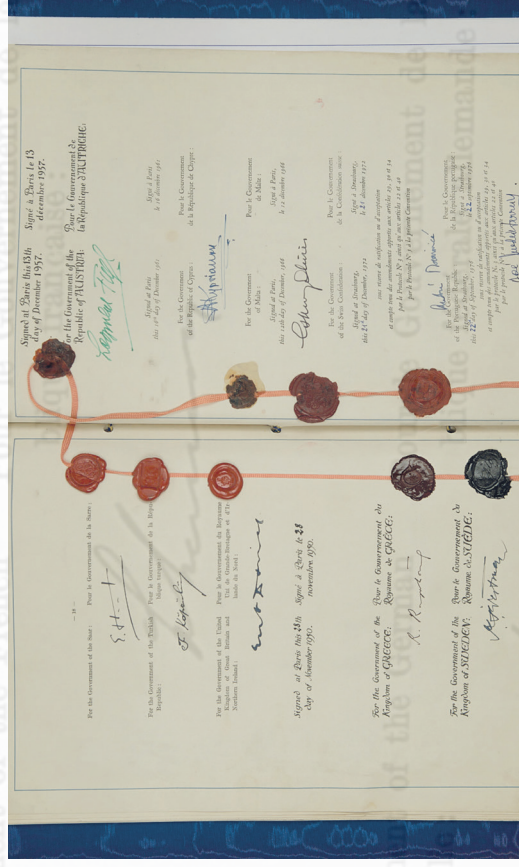 — 18 —
For the Government of the Saar :
Pour le Gouvernement de la Sarre :
For the Government of the Turkish
Republic :
Pour le Gouvernement de la Répu-
blique turque :
For the Government of the United
Kingdom of Great Britain and
Northern Ireland :
Pour le Gouvernement du Royaume
Uni de Grande-Bretagne et d'Ir-
lande du Nord :
Signed at Paris this 28th
day of November 1950.
Signé à Paris le 28
novembre 1950.
For the Government of the
Kingdom of GREECE:
Pour le Gouvernement du
Royaume de GRÈCE:
For the Government of the
Kingdom of SWEDEN:
Pour le Gouvernement du
Royaume de SUÈDE:
Signed at Paris this 13th
day of December 1957.
Signé à Paris le 13
décembre 1957.
For the Government of the
Republic of AUSTRIA:
Pour le Gouvernement de
la République d'AUTRICHE:
Signed at Paris
this 16th day of December 1961
Signé à Paris
le 16 décembre 1961
For the Government
of the Republic of Cyprus :
Pour le Gouvernement
de la République de Chypre :
For the Government
of Malta :
Pour le Gouvernement
de Malte :
Signed at Paris,
this 12th day of December, 1966
Signé à Paris,
le 12 décembre 1966
For the Government
of the Swiss Confederation :
Pour le Gouvernement
de la Confédération suisse :
Signed at Strasbourg,
this 21st day of December, 1972
Signé à Strasbourg,
le 21 décembre 1972
sous réserve de ratification ou d'acceptation
et compte tenu des amendements apportés aux articles 29, 30 et 34
par le Protocole N° 3 ainsi qu'aux articles 22 et 40
par le Protocole N° 5 à la présente Convention
For the Government
of the Portuguese Republic
Pour le Gouvernement
de la République portugaise :
Signed at Strasbourg,
this 22nd day of September, 1976
Signé à Strasbourg,
le 22 septembre 1976
sous réserve de ratification ou d'acceptation
et compte tenu des amendements apportés aux articles 29, 30 et 34
par le protocole N° 3 ainsi qu'aux articles 22 et 40
par le protocole N° 5 à la présente Convention